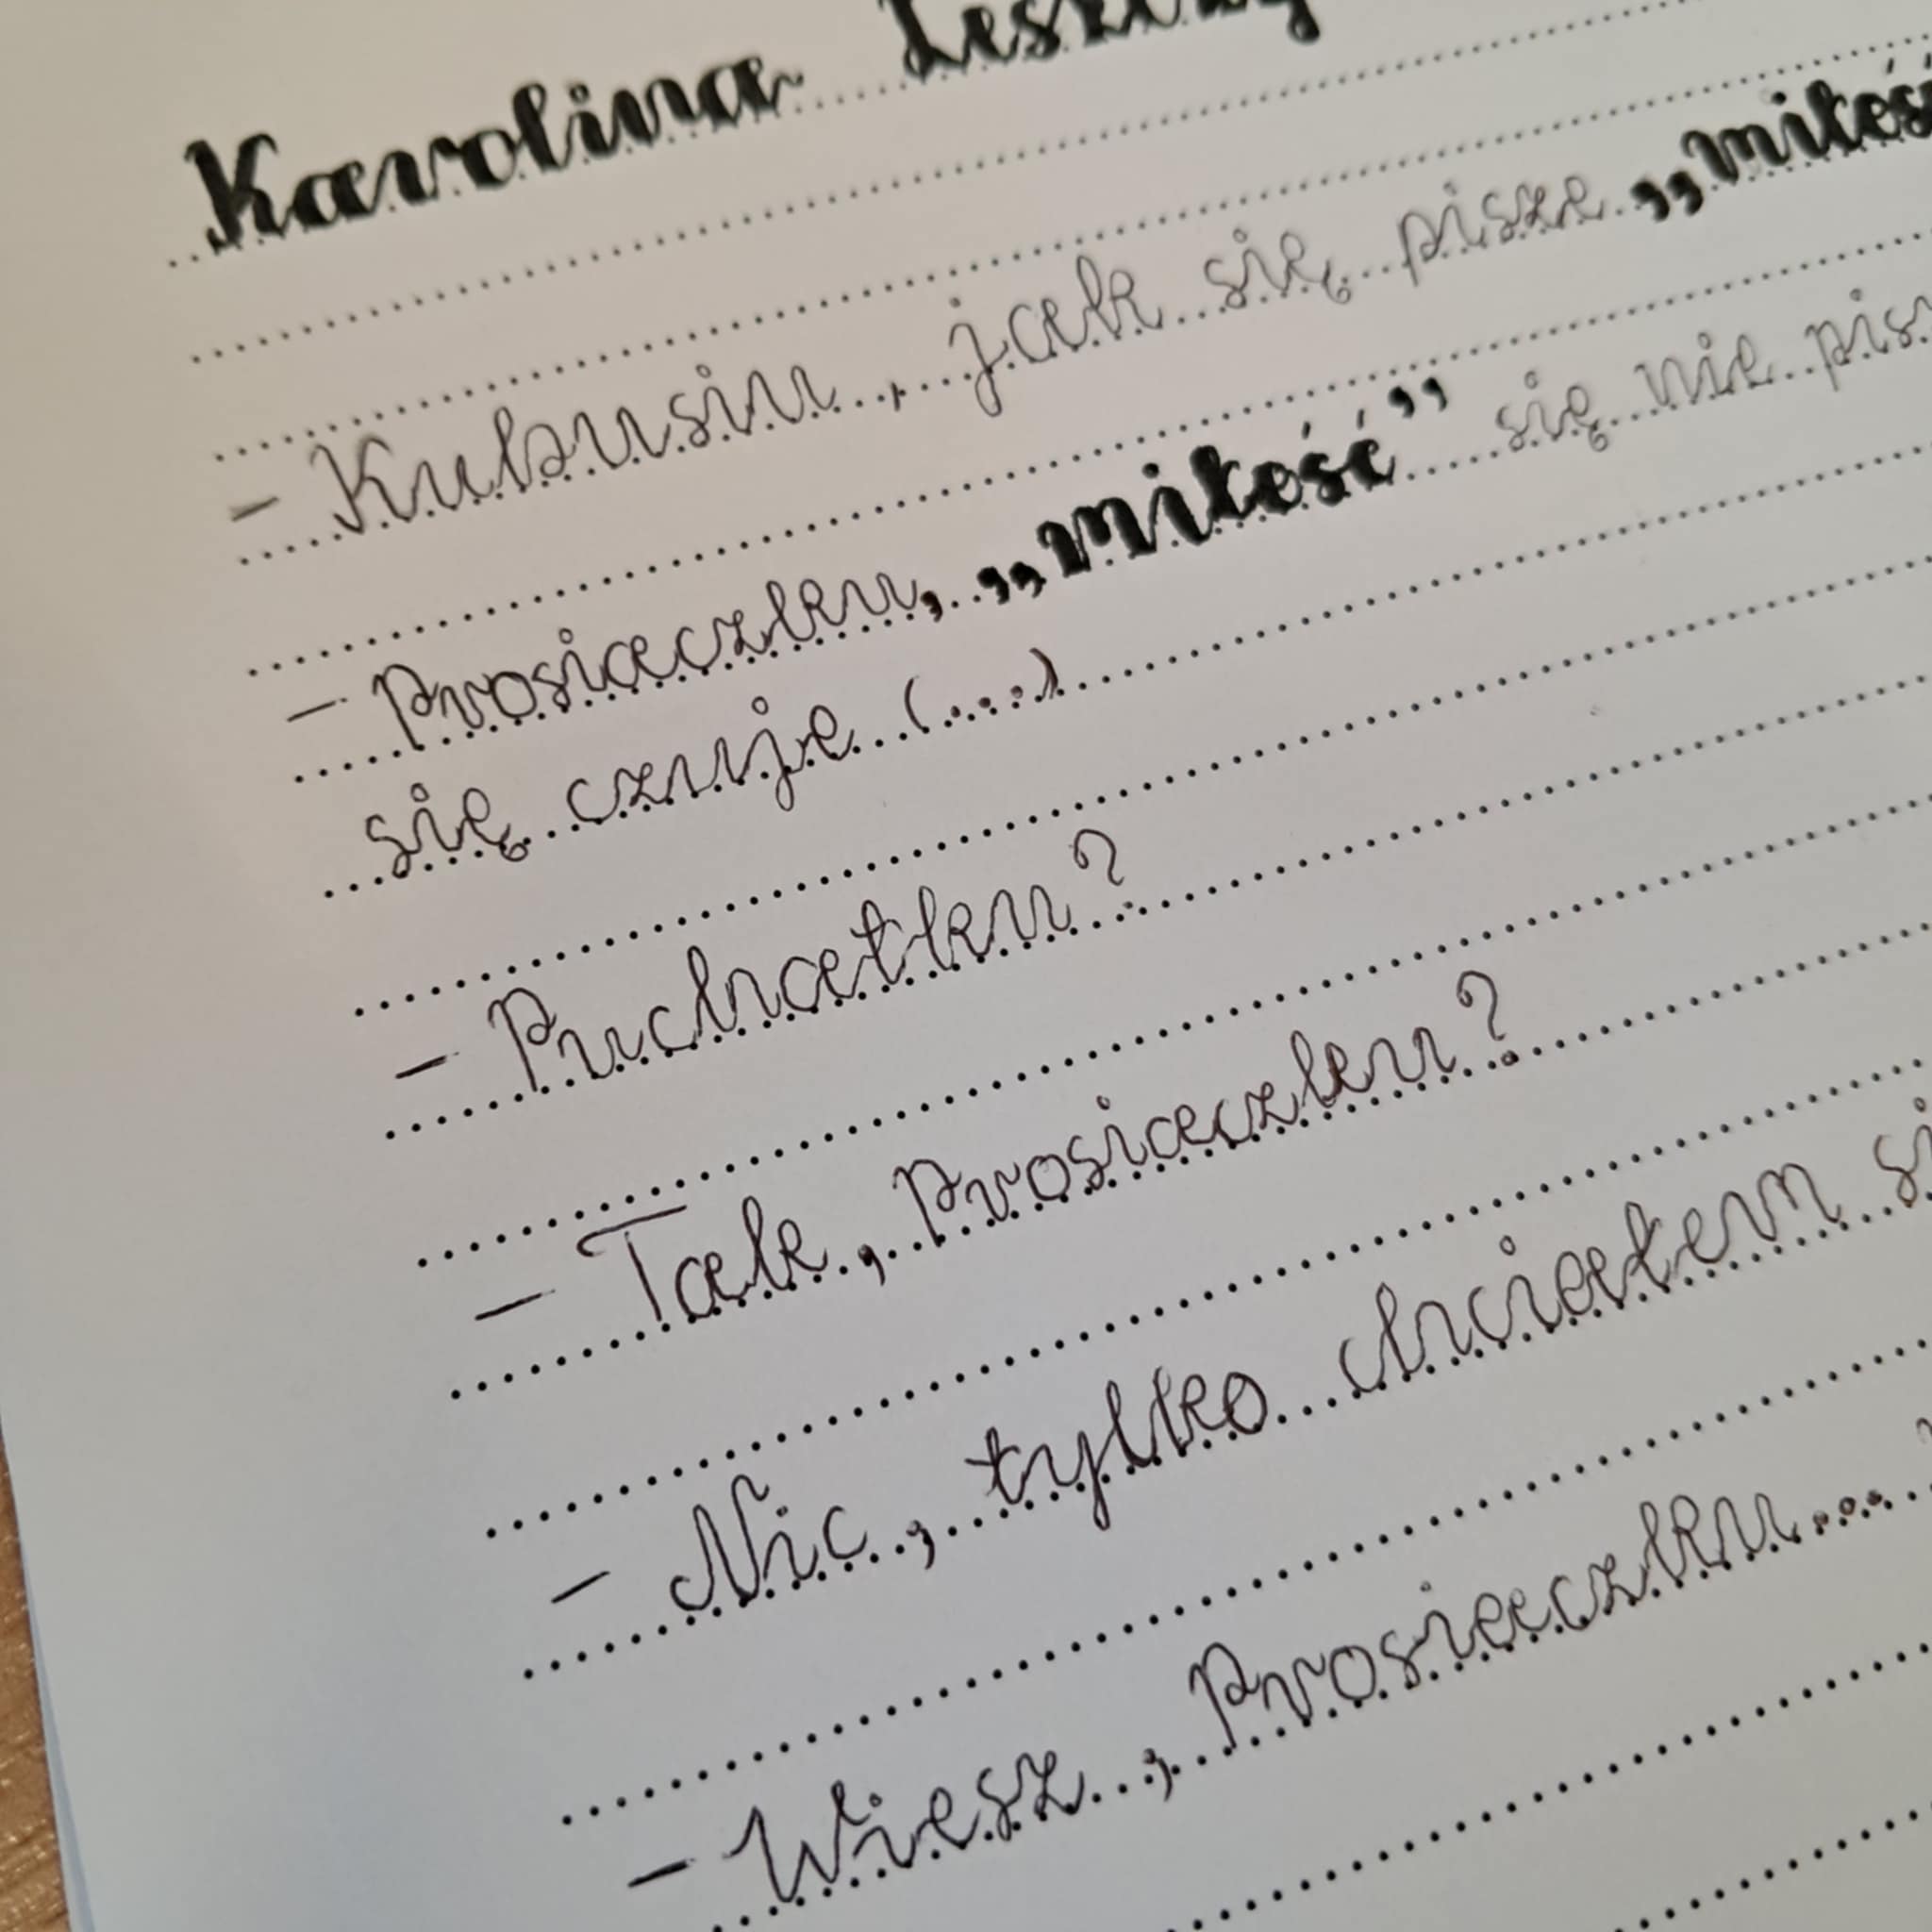 Karolina
- Kubusiu, jak się pisze „miłość
- Prosiaczku, „miłość” się nie
się czuje (...)
- Puchatku?
- Tak, Prosiaczku?
- Nic, tylko chciałem
- Wiesz, Prosiaczku...